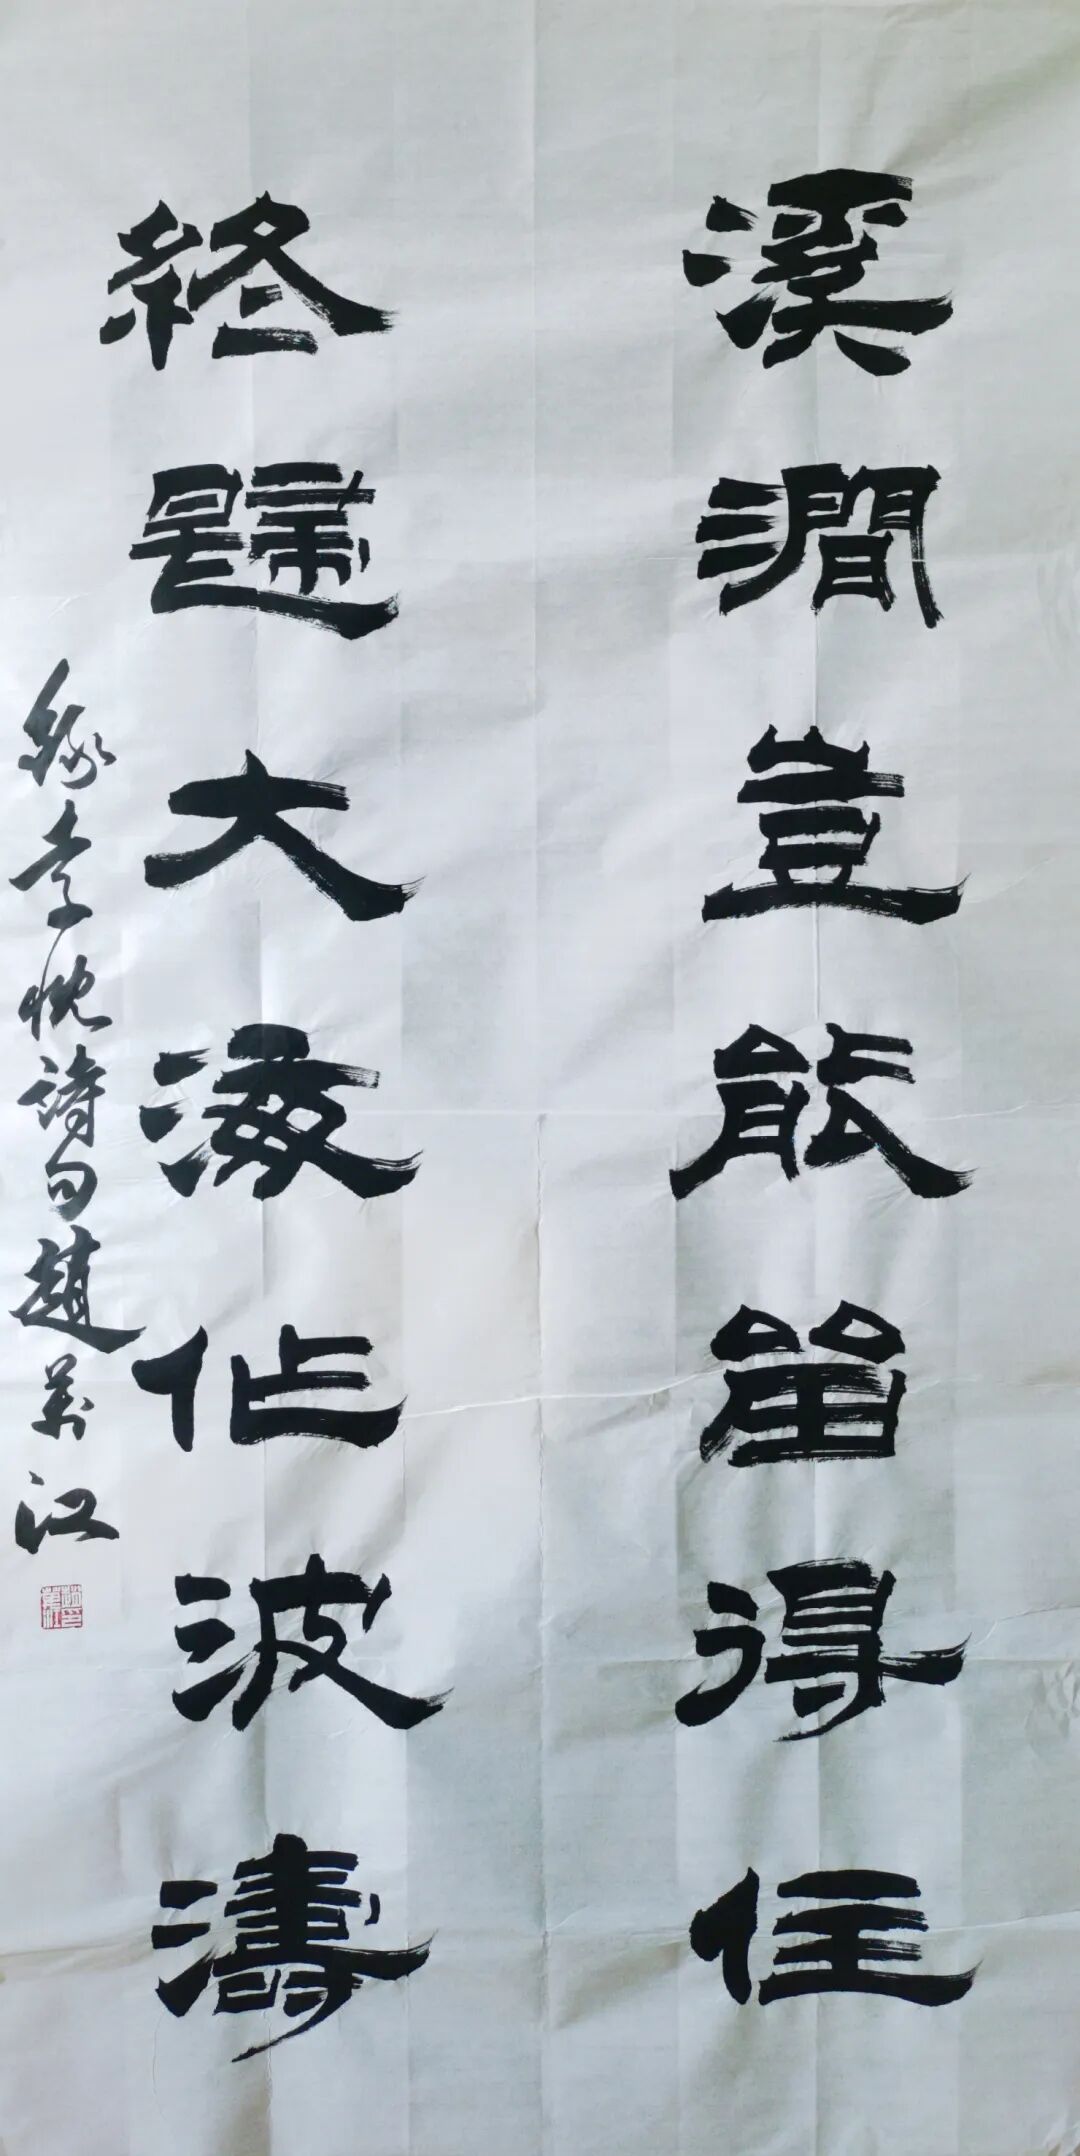 溪澗豈能留得住
終歸大海作波濤
録李忱詩句趙万江